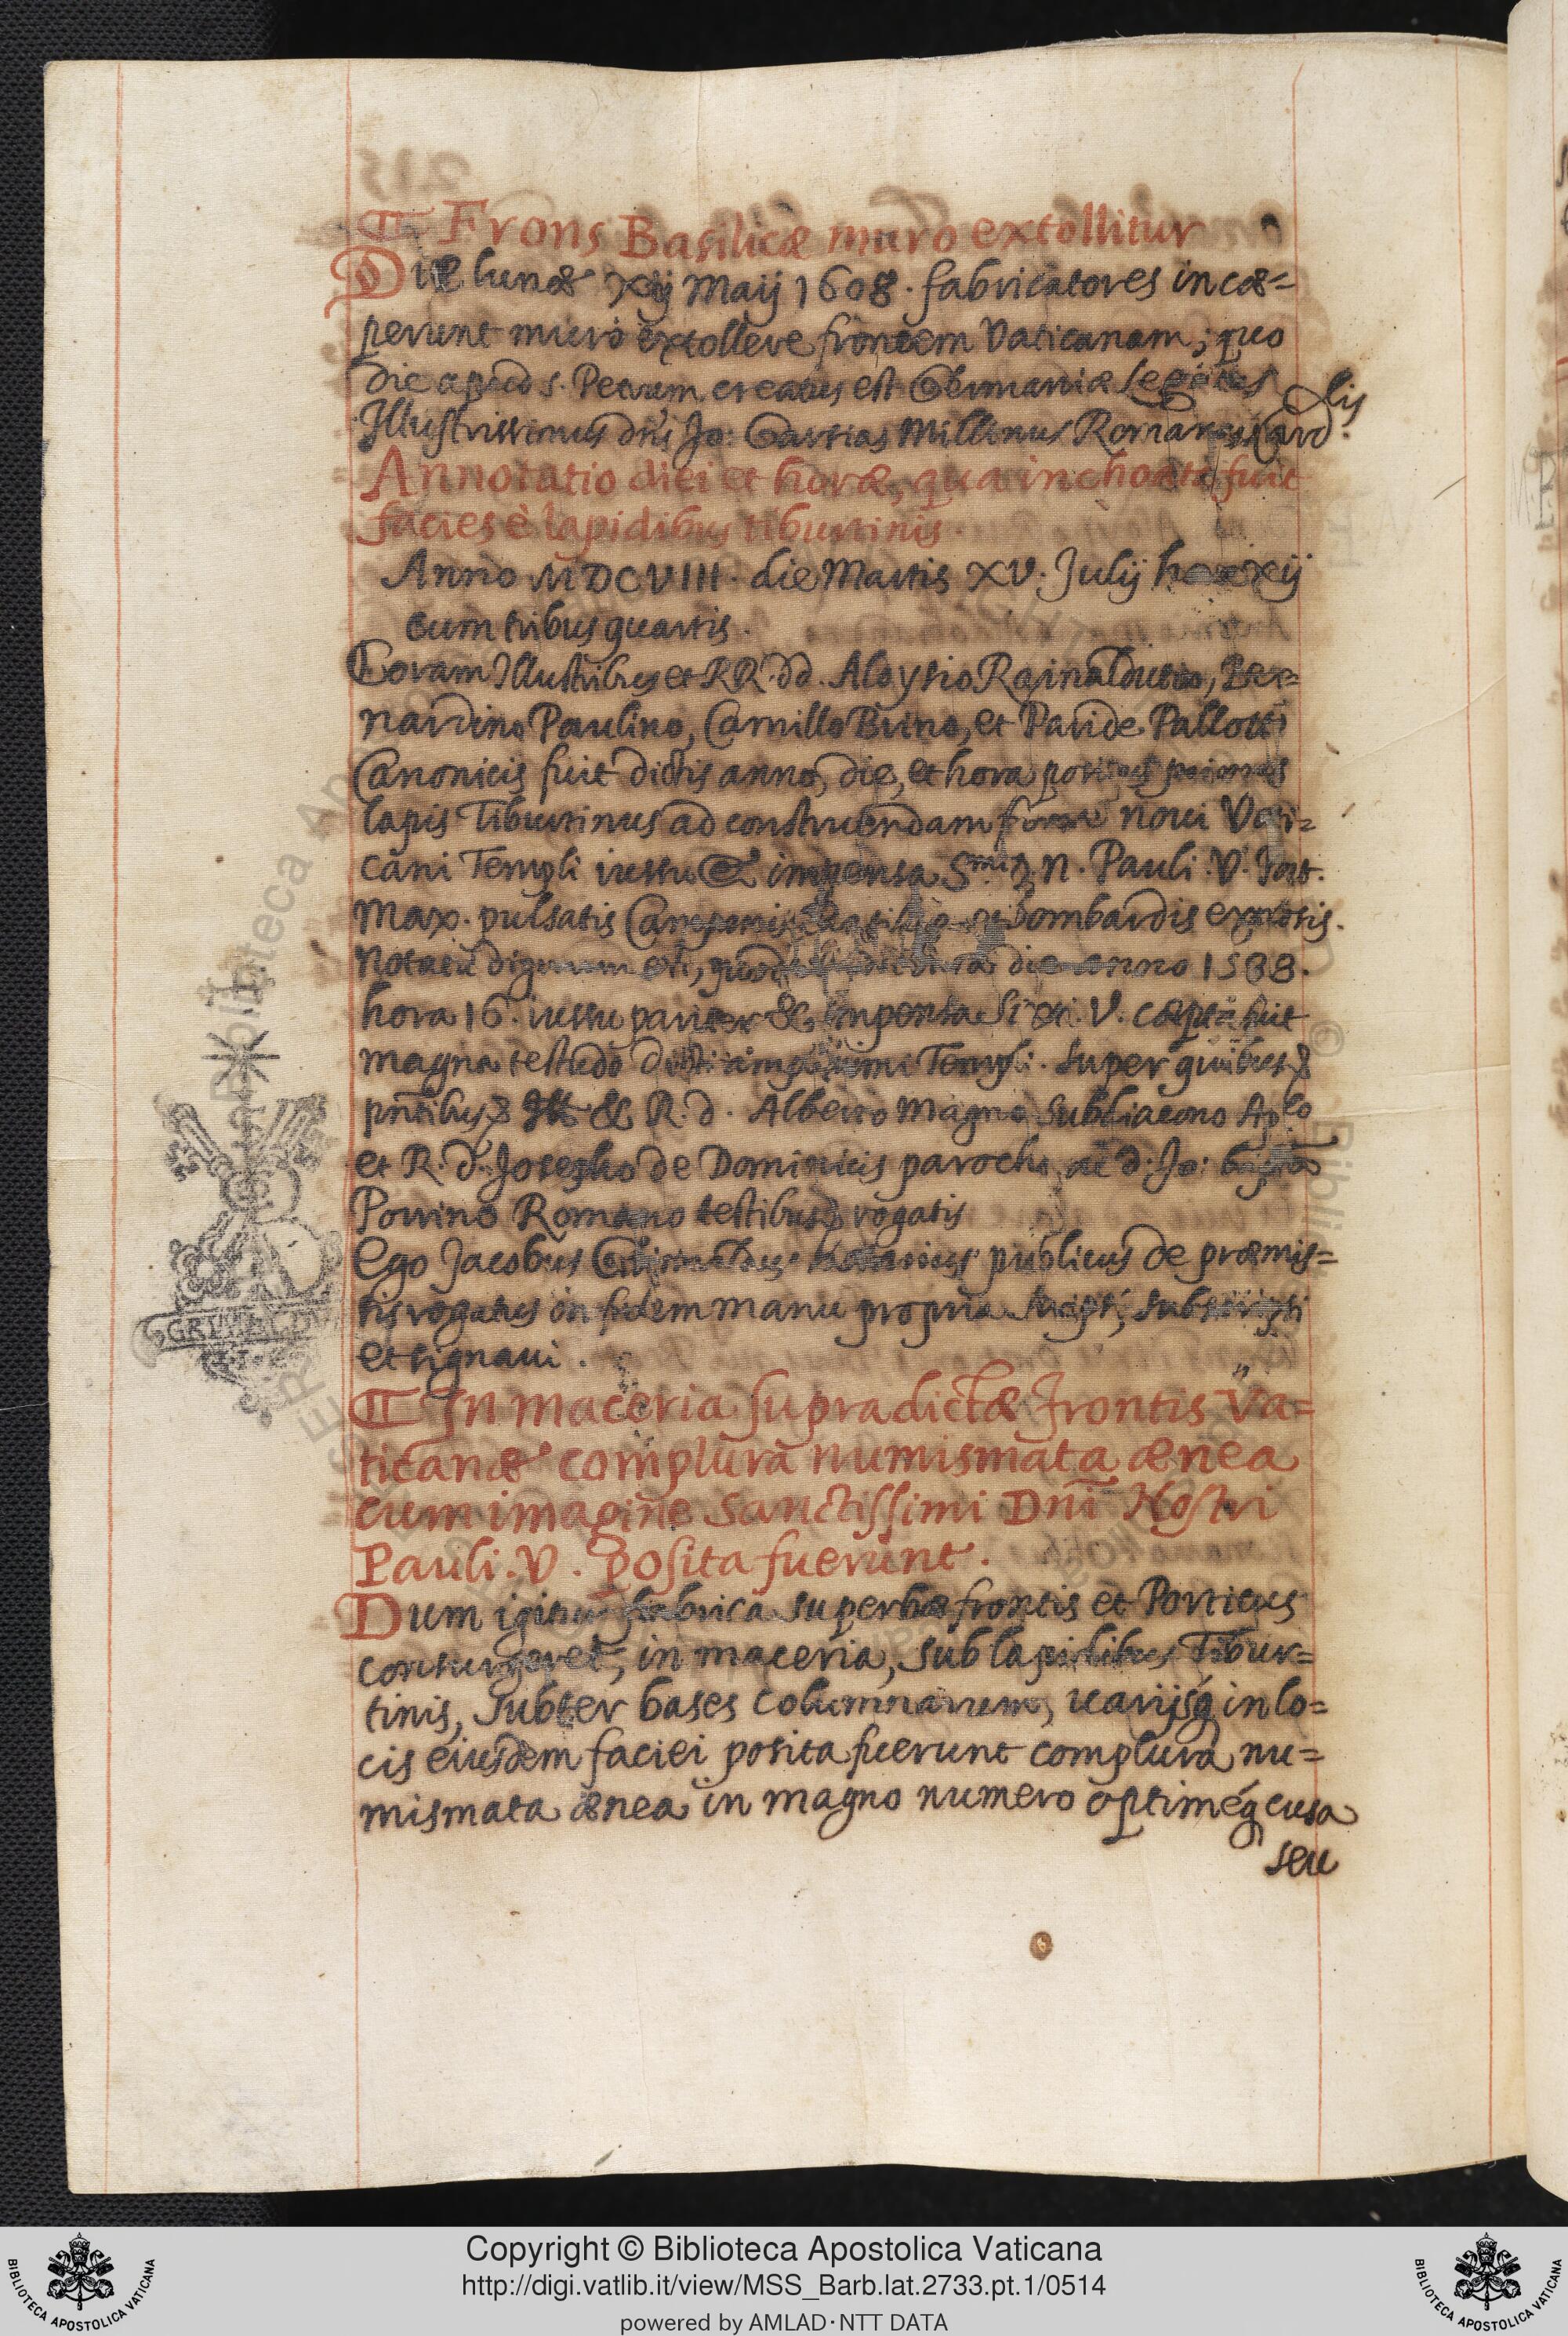 ¶ Frons Basilicæ muro extollitur
Die lunæ xij Maij 1608. fabricatores incæ=
perunt muro extollere frontem Vaticanam; quo
die apud s. Petrum creatus est Germaniæ Legatus
Illustrissimus dns Jo: Garsias Millinus Romanus Card.lis
Annotatio diei et horæ, qua inchoata fuit
facies è lapidibus tiburtinis.
Anno MDCVIII. die Martis XV. Julij hora xij
cum tribus quartis.
Coram Illustribus et RR. dd. Aloysio Rainaldutio, Ber=
nardino Paulino, Camillo Bruno, et Paride Pallotti
Canonicis fuit dictis anno, die, et hora positus primus
lapis Tiburtinus ad construendam noui Vati=
cani Templi iussu & impensa S.mi D. N. Pauli. V. Pont.
Max. pulsatis Campanis bombardis explosis.
Notatu dignum est, quod die anno 1588.
hora 16. iussu pariter & impensa Sixti. V. cæpta fuit
magna testudo dicti amplissimi Templi. Super quibus &
pntibus & Ill. & R. d. Alberto Magno Subdiacono Ap.lo
et R. d. Josepho de Dominicis parocho, ac d. Jo: bapta
Porrino Romano testibus & rogatis
Ego Jacobus Grimaldus notarius publicus de præmis=
sis rogatus in fidem manu propria scripsi, subscripsi
et signaui.
GRIMALD
¶ In maceria supradictæ frontis Va=
ticanæ complura numismata ænea
cum imagine Sanctissimi Dni Nostri
Pauli. V. posita fuerunt.
Dum igitur fabrica superbæ frontis et Porticus
consurgeret, in maceria, sub lapidibus Tibur=
tinis, subter bases columnarum, uarijsq in lo=
cis eiusdem faciei posita fuerunt complura nu=
mismata ænea in magno numero optiméq cusa
seu
Copyright © Biblioteca Apostolica Vaticana
http://digi.vatlib.it/view/MSS_Barb.lat.2733.pt.1/0514
powered by AMLAD·NTT DATA
BIBLIOTECA APOSTOLICA VATICANA
BIBLIOTECA APOSTOLICA VATICANA